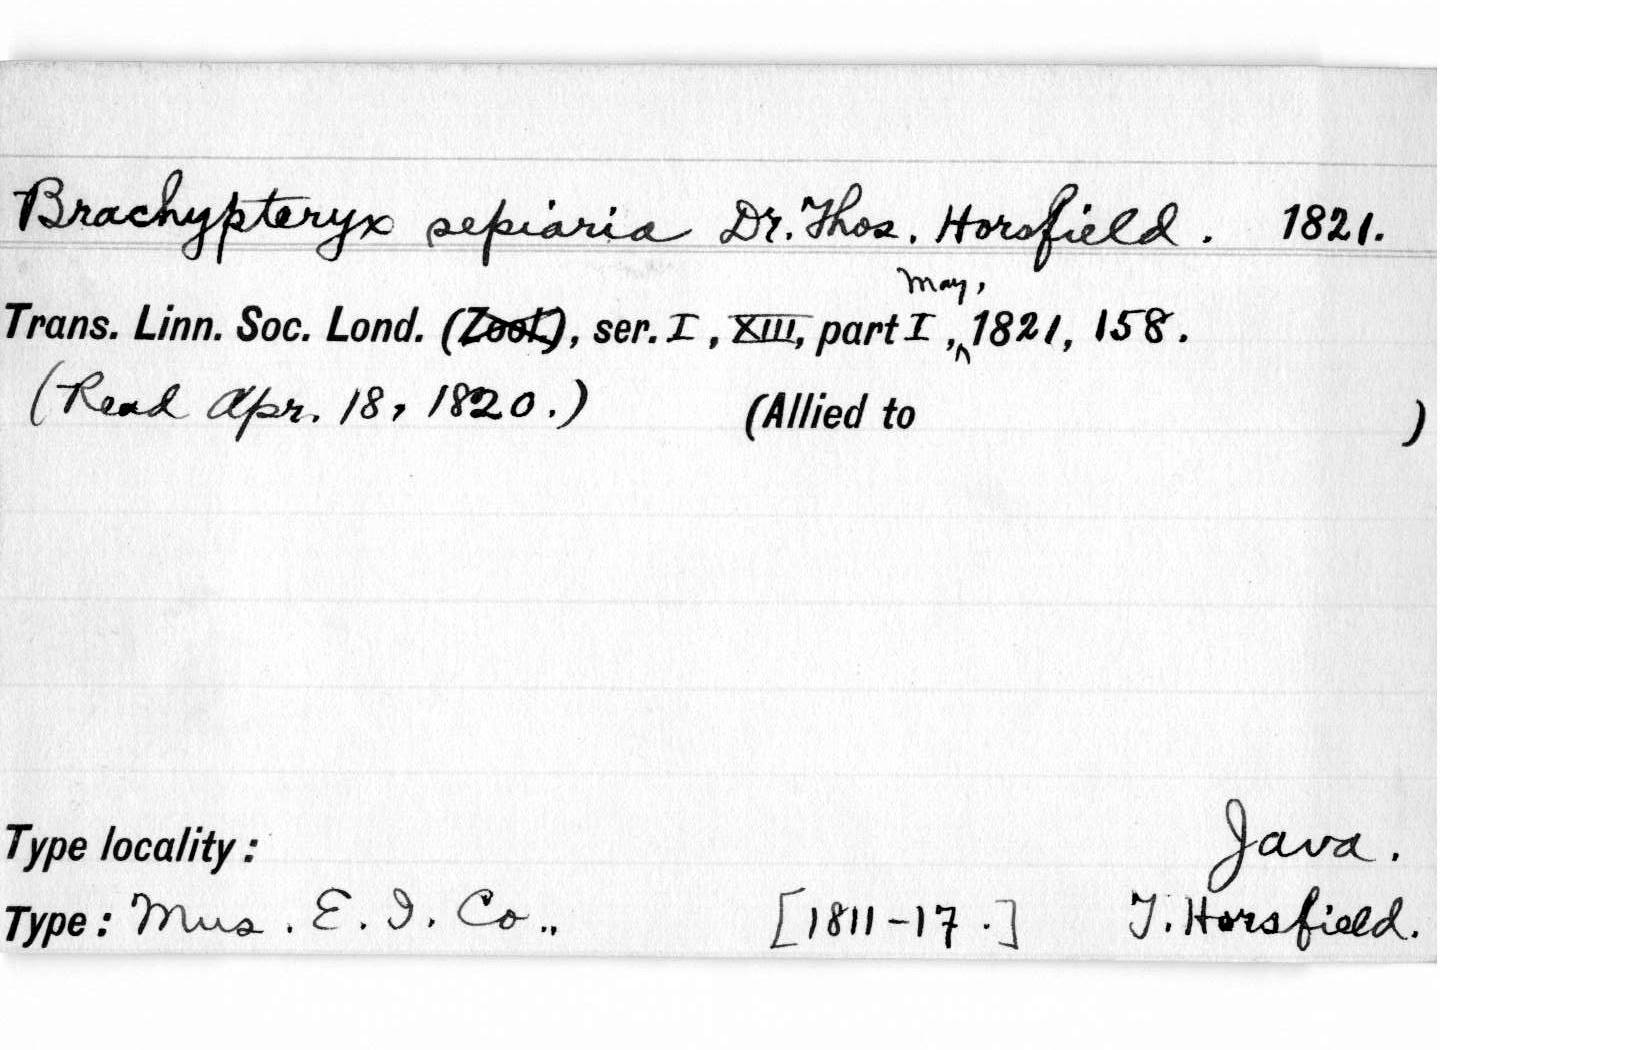 Brachypteryx sepiaria Dr. Thos. Horsfield. 1821.
May,
Trans. Linn. Soc. Lond. (Zool.), ser. I, XIII, part I, 1821, 158.
(Read Apr. 18, 1820.) (Allied to )
Type locality: Java.
Type: Mus. E. I. Co., [1811-17.] T. Horsfield.